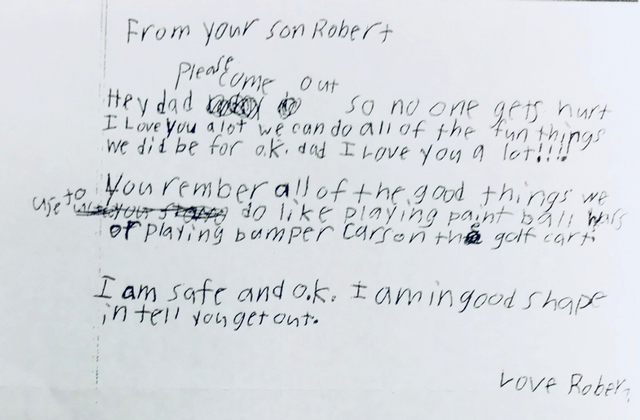 From your son Robert
please come out
Hey dad so no one gets hurt
I Love you a lot we can do all of the fun things
we did be for o.k. dad I Love you a lot!!!!
You rember all of the good things we
use to do like playing paint ball
or playing bumper cars on the golf cart.
I am safe and o.k. I am in good shape
in tell you get out.
Love Robert